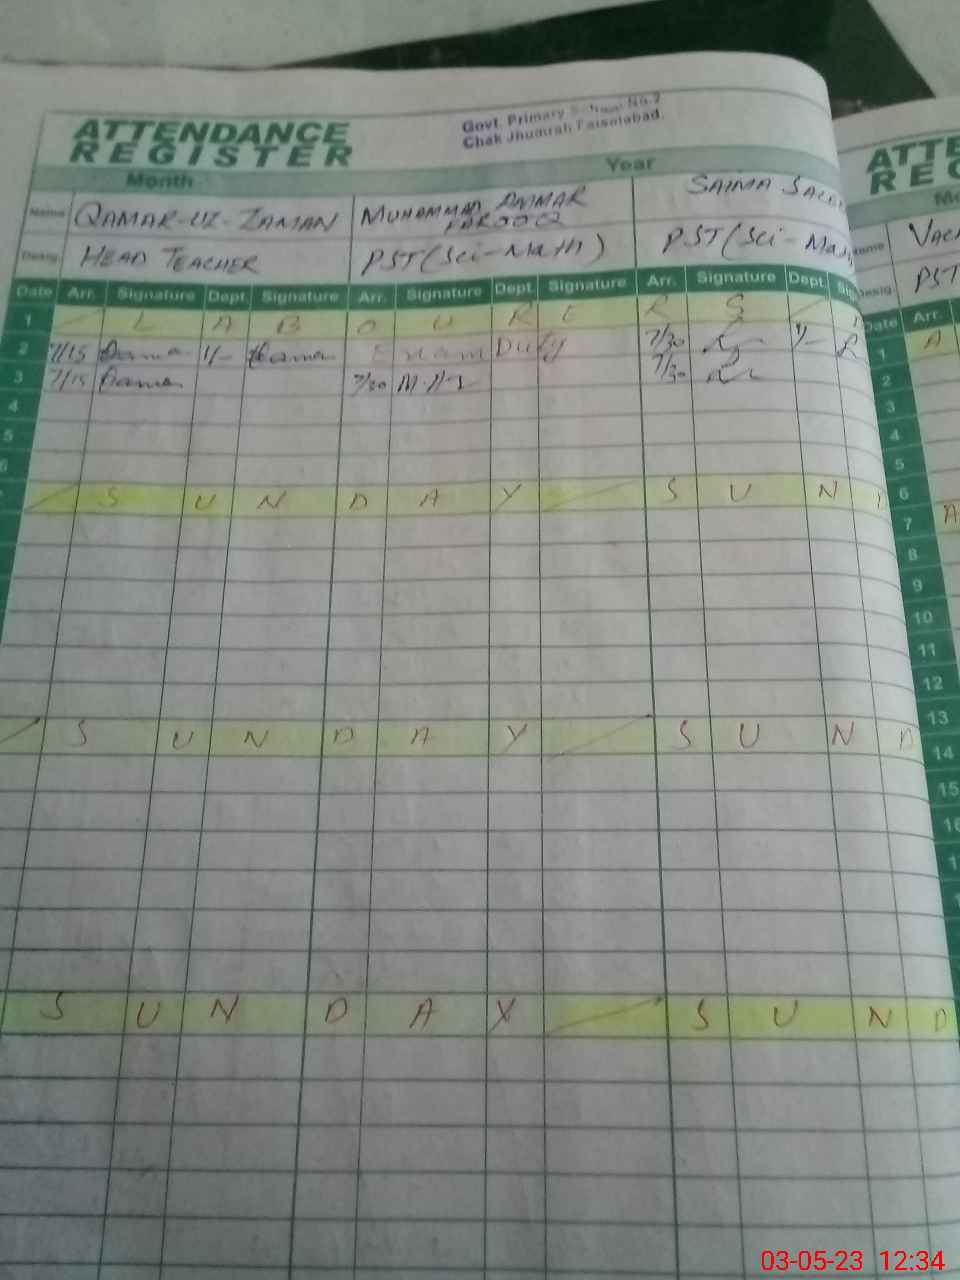 ATTENDANCE
REGISTER
Govt. Primary School No.
Chak Jhumrah Faisalabad.
Month Year
Name QAMAR-UZ-ZAMAN MUHAMMAD AMMAR FAROOQ SAIMA
Desig. HEAD TEACHER PST (Sci-Math) PST (Sci-
Date Arr. Signature Dept. Signature Arr. Signature Dept. Signature Arr. Signature Dept.
1 L A B O U R E R S
2 7/15 1/- Exam Duty 7/30 1/-
3 7/15 7/30 7/30
4
5
6
S U N D A Y S U N D
S U N D A Y S U N D
S U N D A Y S U N D
ATTE
REG
Name
Desig. PST
Date Arr.
1 A
2
3
4
5
6
7 A
8
9
10
11
12
13
14
15
03-05-23 12:34